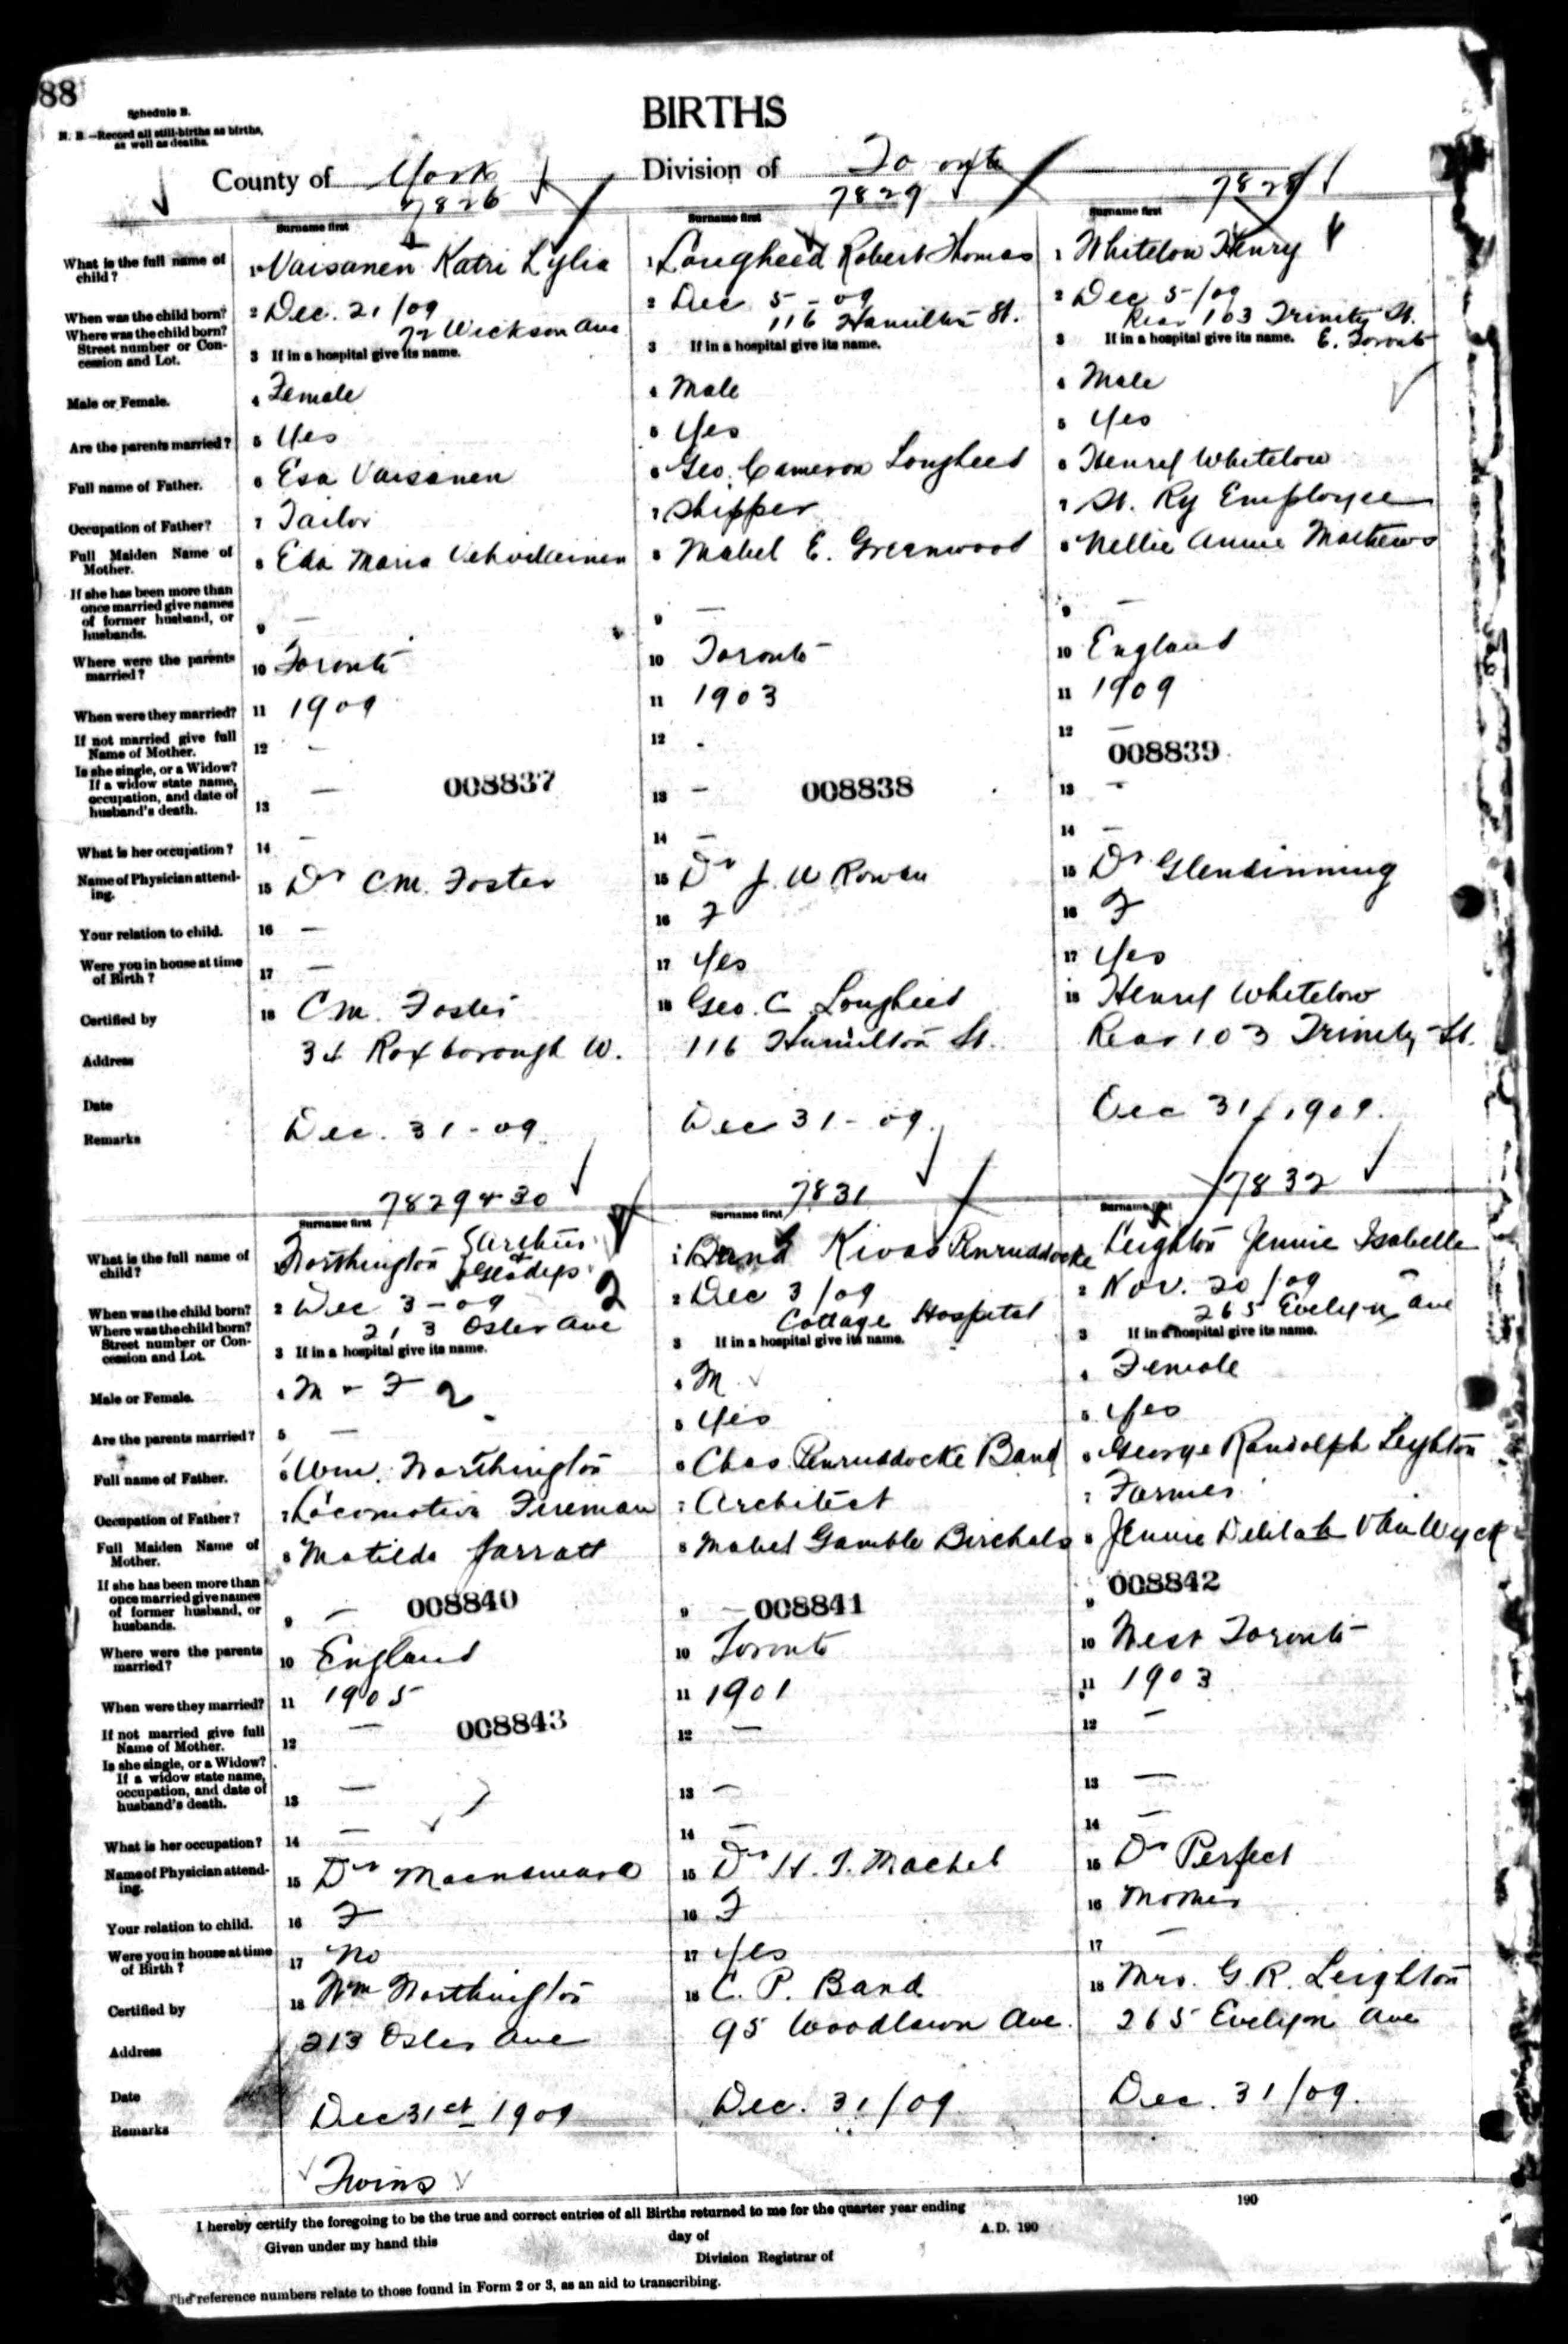 88
Schedule B.
N. B.—Record all still-births as births,
as well as deaths.
BIRTHS
County of York
Division of Toronto
7826
7829
7828
Surname first
Surname first
Surname first
What is the full name of child?
1 Vaisanen Katri Lylia
1 Lougheed Robert Thomas
1 Whitelow Henry
When was the child born?
2 Dec. 21/09
2 Dec 5-09
2 Dec 5/09
Where was the child born? Street number or Concession and Lot.
72 Wickson Ave
116 Hamilton St.
Rear 103 Trinity St.
3 If in a hospital give its name.
3 If in a hospital give its name.
3 If in a hospital give its name. E. Toronto
Male or Female.
4 Female
4 Male
4 Male
Are the parents married?
5 Yes
5 Yes
5 Yes
Full name of Father.
6 Esa Vaisanen
6 Geo. Cameron Lougheed
6 Henry Whitelow
Occupation of Father?
7 Tailor
7 Shipper
7 St. Ry Employee
Full Maiden Name of Mother.
8 Eda Maria
8 Mabel E. Greenwood
8 Nellie Annie Mathews
If she has been more than once married give names of former husband, or husbands.
9 —
9 —
9 —
Where were the parents married?
10 Toronto
10 Toronto
10 England
When were they married?
11 1909
11 1903
11 1909
If not married give full Name of Mother.
12 -
12 -
12 —
008839
Is she single, or a Widow? If a widow state name, occupation, and date of husband's death.
13 — 008837
13 - 008838
13 -
What is her occupation?
14 -
14 —
14 —
Name of Physician attending.
15 Dr C.M. Foster
15 Dr J. W Rowan
15 Dr Glendinning
Your relation to child.
16 —
16 F
16 F
Were you in house at time of Birth?
17 —
17 Yes
17 Yes
Certified by
18 C.M. Foster
18 Geo. C Lougheed
18 Henry Whitelow
Address
34 Roxborough W.
116 Hamilton St.
Rear 103 Trinity St.
Date
Dec. 31-09
Dec 31-09.
Dec 31/1909.
Remarks
7829 & 30
7831
7832
Surname first
Surname first
Surname first
What is the full name of child?
Northington { &
Gladys 2
1 Band Kivas Penruddocke
Leighton Jennie Isabelle
When was the child born?
2 Dec 3-09
2 Dec 3/09
2 Nov. 20/09
Where was the child born? Street number or Concession and Lot.
213 Osler Ave
Cottage Hospital
265 Evelyn Ave
3 If in a hospital give its name.
3 If in a hospital give its name.
3 If in a hospital give its name.
Male or Female.
4 M & F 2
4 M
4 Female
Are the parents married?
5 —
5 Yes
5 Yes
Full name of Father.
6 Wm. Northington
6 Chas. Penruddocke Band
6 George Randolph Leighton
Occupation of Father?
7 Locomotive Fireman
7 Architect
7 Farmer
Full Maiden Name of Mother.
8 Matilda Jarratt
8 Mabel Gamble
8 Jennie Delilah VanWyck
If she has been more than once married give names of former husband, or husbands.
9 — 008840
9 — 008841
9 008842
Where were the parents married?
10 England
10 Toronto
10 West Toronto
When were they married?
11 1905
11 1901
11 1903
If not married give full Name of Mother.
12 — 008843
12 —
12 —
Is she single, or a Widow? If a widow state name, occupation, and date of husband's death.
13 —
13 —
13 —
What is her occupation?
14 —
14 —
14 —
Name of Physician attending.
15 Dr
15 Dr H. T. Machel
15 Dr Perfect
Your relation to child.
16 F
16 F
16 Mother
Were you in house at time of Birth?
17 No
17 Yes
17 —
Certified by
18 Wm Northington
18 C. P. Band
18 Mrs. G. R. Leighton
Address
213 Osler Ave
95 Woodlawn Ave.
265 Evelyn Ave
Date
Dec 31st 1909
Dec. 31/09
Dec. 31/09.
Remarks
Twins
I hereby certify the foregoing to be the true and correct entries of all Births returned to me for the quarter year ending 190
Given under my hand this day of A.D. 190
Division Registrar of
The reference numbers relate to those found in Form 2 or 3, as an aid to transcribing.